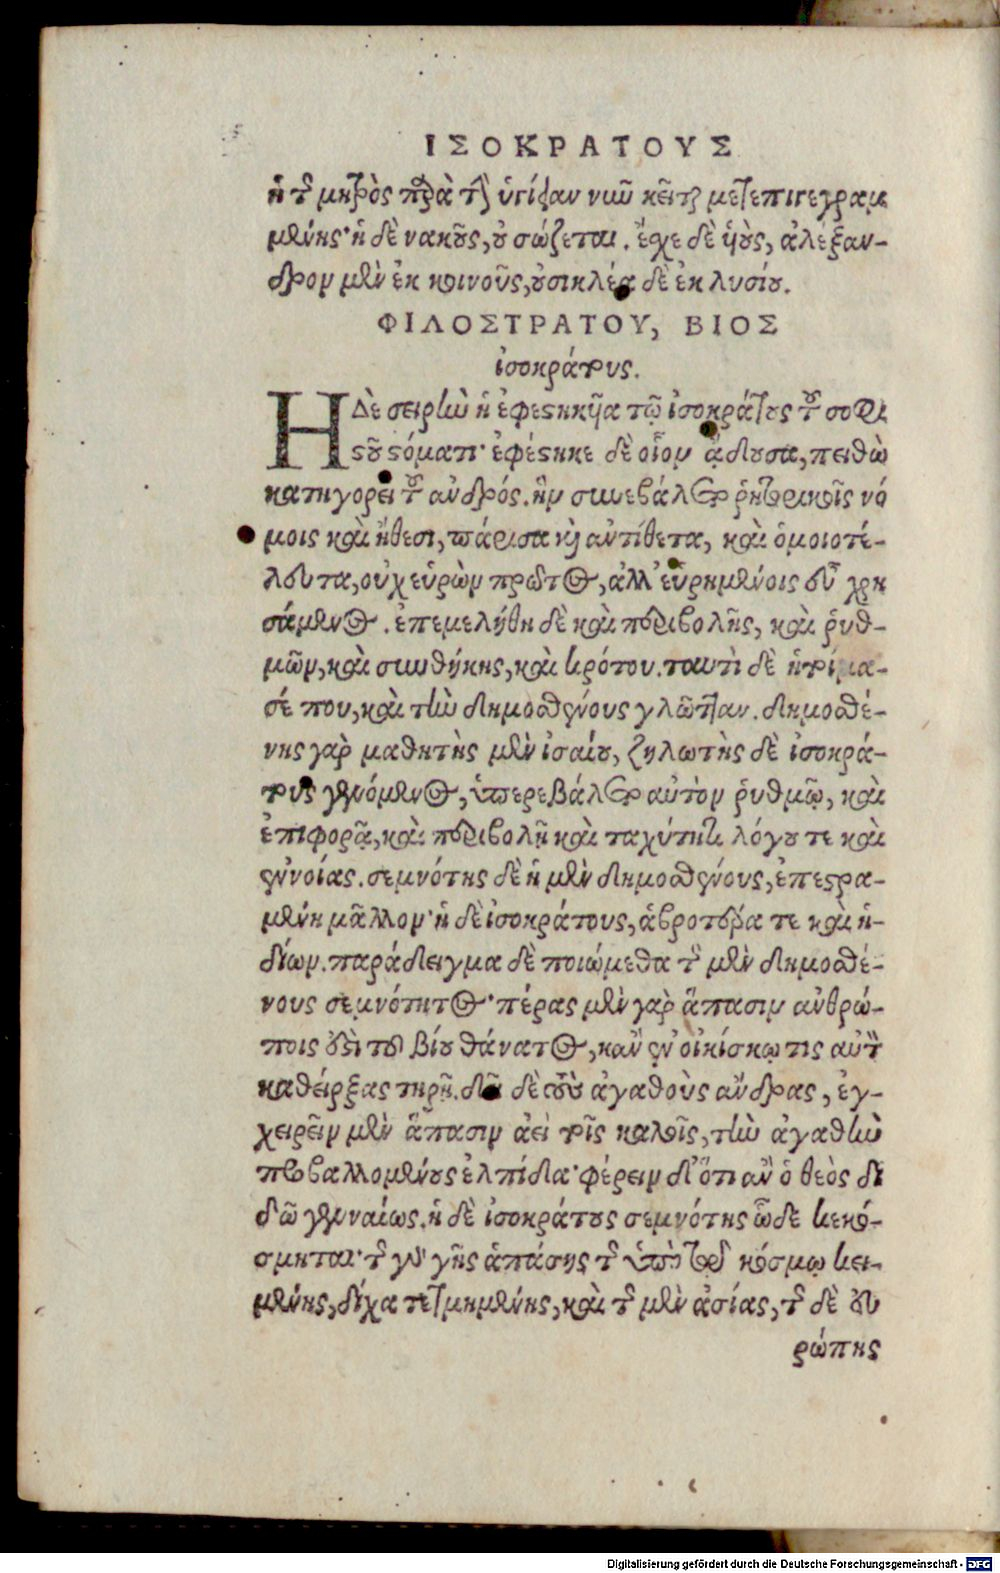 ΙΣΟΚΡΑΤΟΥΣ
ἡ τῆς μητρὸς παρὰ τὴν ὑγίειαν νῦν κεῖται μετεπιγεγραμ
μένης· ἡ δὲ νακοῦς, οὐ σώζεται. ἔσχε δὲ υἱοὺς, ἀλέξαν-
δρον μὲν ἐκ κοινοῦς, σωσικλέα δὲ ἐκ λυσίου.
ΦΙΛΟΣΤΡΑΤΟΥ, ΒΙΟΣ
ἰσοκράτους.
Η Δὲ σειρὴν ἡ ἐφεστηκυῖα τῷ ἰσοκράτους τοῦ σοφι
στοῦ στόματι· ἐφέστηκε δὲ οἷον ᾄδουσα, πειθὼ
κατηγορεῖ τοῦ ἀνδρός. ἣν συνεβάλετο ῥητορικοῖς νό
μοις καὶ ἤθεσι, πάρισα καὶ ἀντίθετα, καὶ ὁμοιοτέ-
λευτα, οὐχ εὑρὼν πρῶτος, ἀλλ' εὑρημένοις εὖ χρη
σάμενος. ἐπεμελήθη δὲ καὶ περιβολῆς, καὶ ῥυθ-
μῶν, καὶ συνθήκης, καὶ κρότου. ταυτὶ δὲ ἡτοίμα-
σέ που, καὶ τὴν δημοσθένους γλῶτταν. δημοσθέ-
νης γὰρ μαθητὴς μὲν ἰσαίου, ζηλωτὴς δὲ ἰσοκρά-
τους γενόμενος, ὑπερεβάλετο αὐτὸν ῥυθμῷ, καὶ
ἐπιφορᾷ, καὶ περιβολῇ καὶ ταχύτητι λόγου τε καὶ
ἐννοίας. σεμνότης δὲ ἡ μὲν δημοσθένους, ἐπεστρα-
μένη μᾶλλον· ἡ δὲ ἰσοκράτους, ἁβροτέρα τε καὶ ἡ-
δίων. παράδειγμα δὲ ποιώμεθα τῆς μὲν δημοσθέ-
νους σεμνότητος· πέρας μὲν γὰρ ἅπασιν ἀνθρώ-
ποις ἐστὶ τοῦ βίου θάνατος, κἂν ἐν οἰκίσκῳ τις αὑτὸν
καθείρξας τηρῇ. δεῖ δὲ τοὺς ἀγαθοὺς ἄνδρας, ἐγ-
χειρεῖν μὲν ἅπασιν ἀεὶ τοῖς καλοῖς, τὴν ἀγαθὴν
προβαλλομένους ἐλπίδα· φέρειν δ' ὅτι ἂν ὁ θεὸς δι
δῷ γενναίως. ἡ δὲ ἰσοκράτους σεμνότης ὧδε κεκό-
σμηται· τῆς γὰρ γῆς ἁπάσης τῆς ὑπὸ τῷ κόσμῳ κει-
μένης, δίχα τετμημένης, καὶ τῆς μὲν ἀσίας, τῆς δὲ εὐ
ρώπης
Digitalisierung gefördert durch die Deutsche Forschungsgemeinschaft - DFG